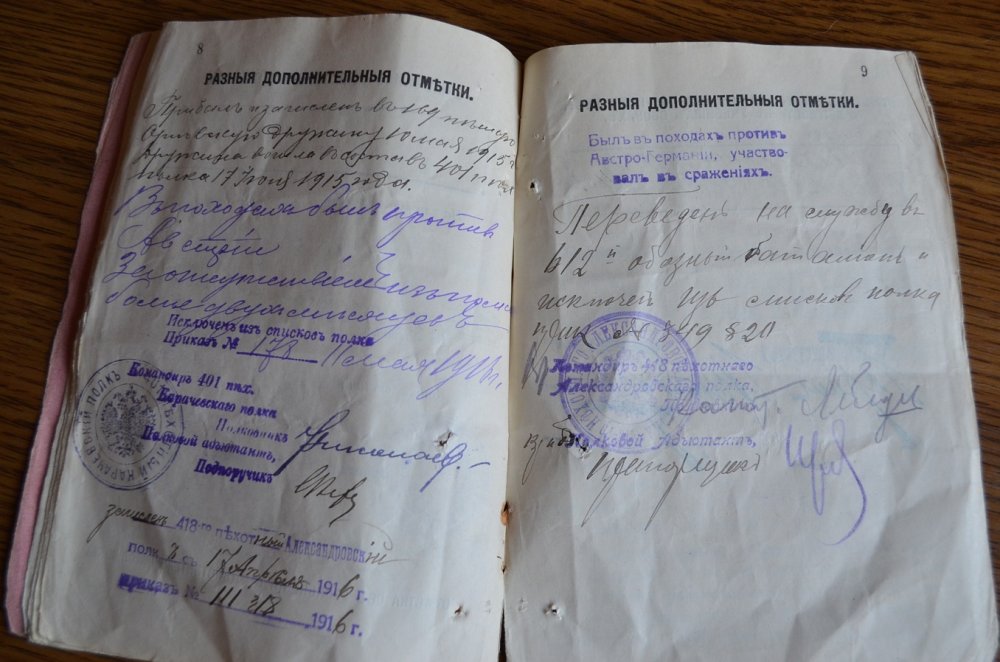 8
РАЗНЫЯ ДОПОЛНИТЕЛЬНЫЯ ОТМѢТКИ.
Прибылъ и зачисленъ въ
дружину 1915 г
дружина вошла въ составъ 401 пѣх
полка 17 Іюля 1915 года.
Въ походахъ былъ противъ
Австріи
За отсутствіемъ изъ полка
более двухъ месяцевъ
Исключенъ изъ списковъ полка
Приказъ № 178 1 мая 1916 г.
Командиръ 401 пѣх.
Карачевскаго полка
Полковникъ
Полковой адъютантъ,
Подпоручикъ
зачисленъ 418-го пѣхотный Александровскій
полкъ съ 17 Апреля 1916 г.
приказъ № 111 318 1916 г.
9
РАЗНЫЯ ДОПОЛНИТЕЛЬНЫЯ ОТМѢТКИ.
Былъ въ походахъ противъ
Австро-Германіи, участво-
валъ въ сраженіяхъ.
Переведенъ на службу въ
612й обозный баталіонъ и
исключенъ изъ списковъ полка
§ 20
Командиръ 418 пѣхотнаго
Александровскаго полка,
Полковой Адъютантъ,
Прапорщикъ